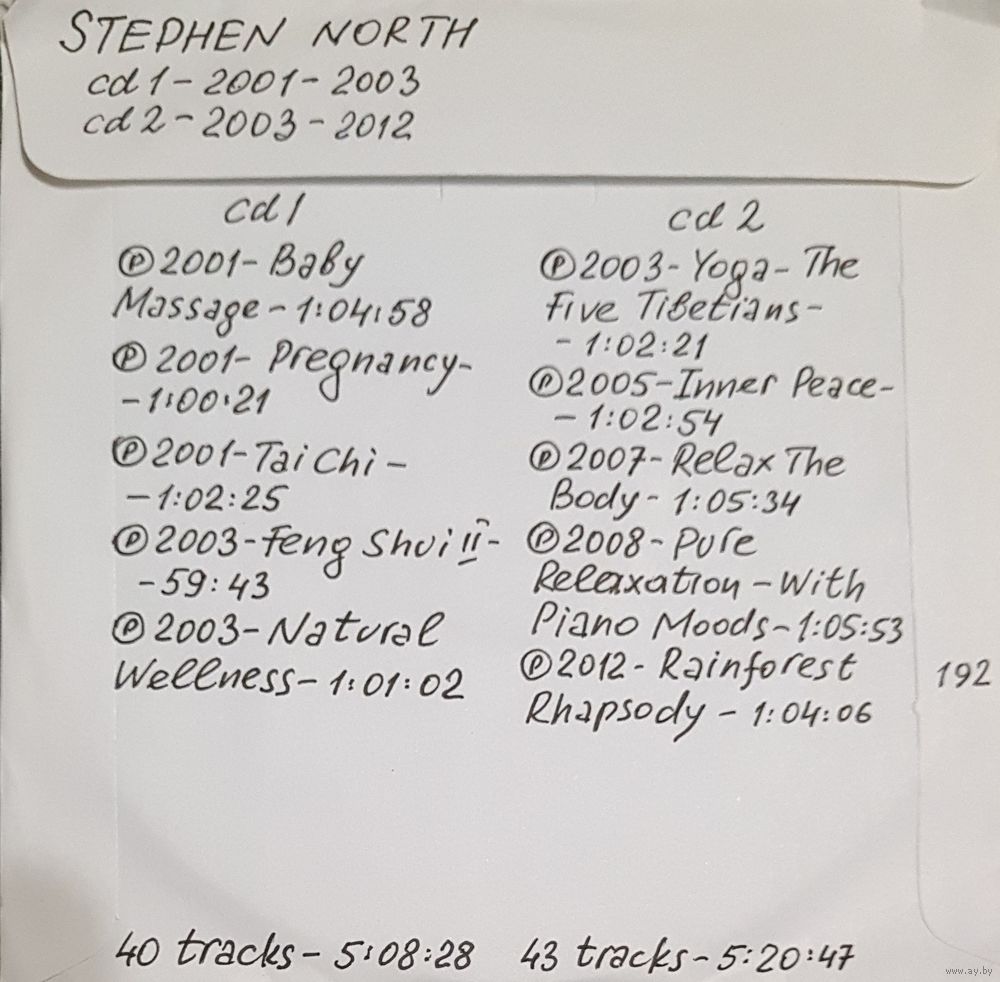 STEPHEN NORTH
cd 1 - 2001 - 2003
cd 2 - 2003 - 2012
cd 1
℗ 2001 - Baby
Massage - 1:04:58
℗ 2001 - Pregnancy -
- 1:00:21
℗ 2001 - Tai Chi -
- 1:02:25
℗ 2003 - Feng Shui II -
- 59:43
℗ 2003 - Natural
Wellness - 1:01:02
40 tracks - 5:08:28
cd 2
℗ 2003 - Yoga - The
Five Tibetians -
- 1:02:21
℗ 2005 - Inner Peace -
- 1:02:54
℗ 2007 - Relax The
Body - 1:05:34
℗ 2008 - Pure
Relaxation - With
Piano Moods - 1:05:53
℗ 2012 - Rainforest
Rhapsody - 1:04:06
43 tracks - 5:20:47
192
www.ay.by